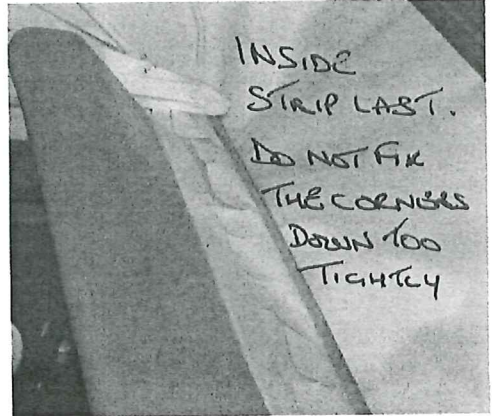 INSIDE
STRIP LAST.
DO NOT FIX
THE CORNERS
DOWN TOO
TIGHTLY